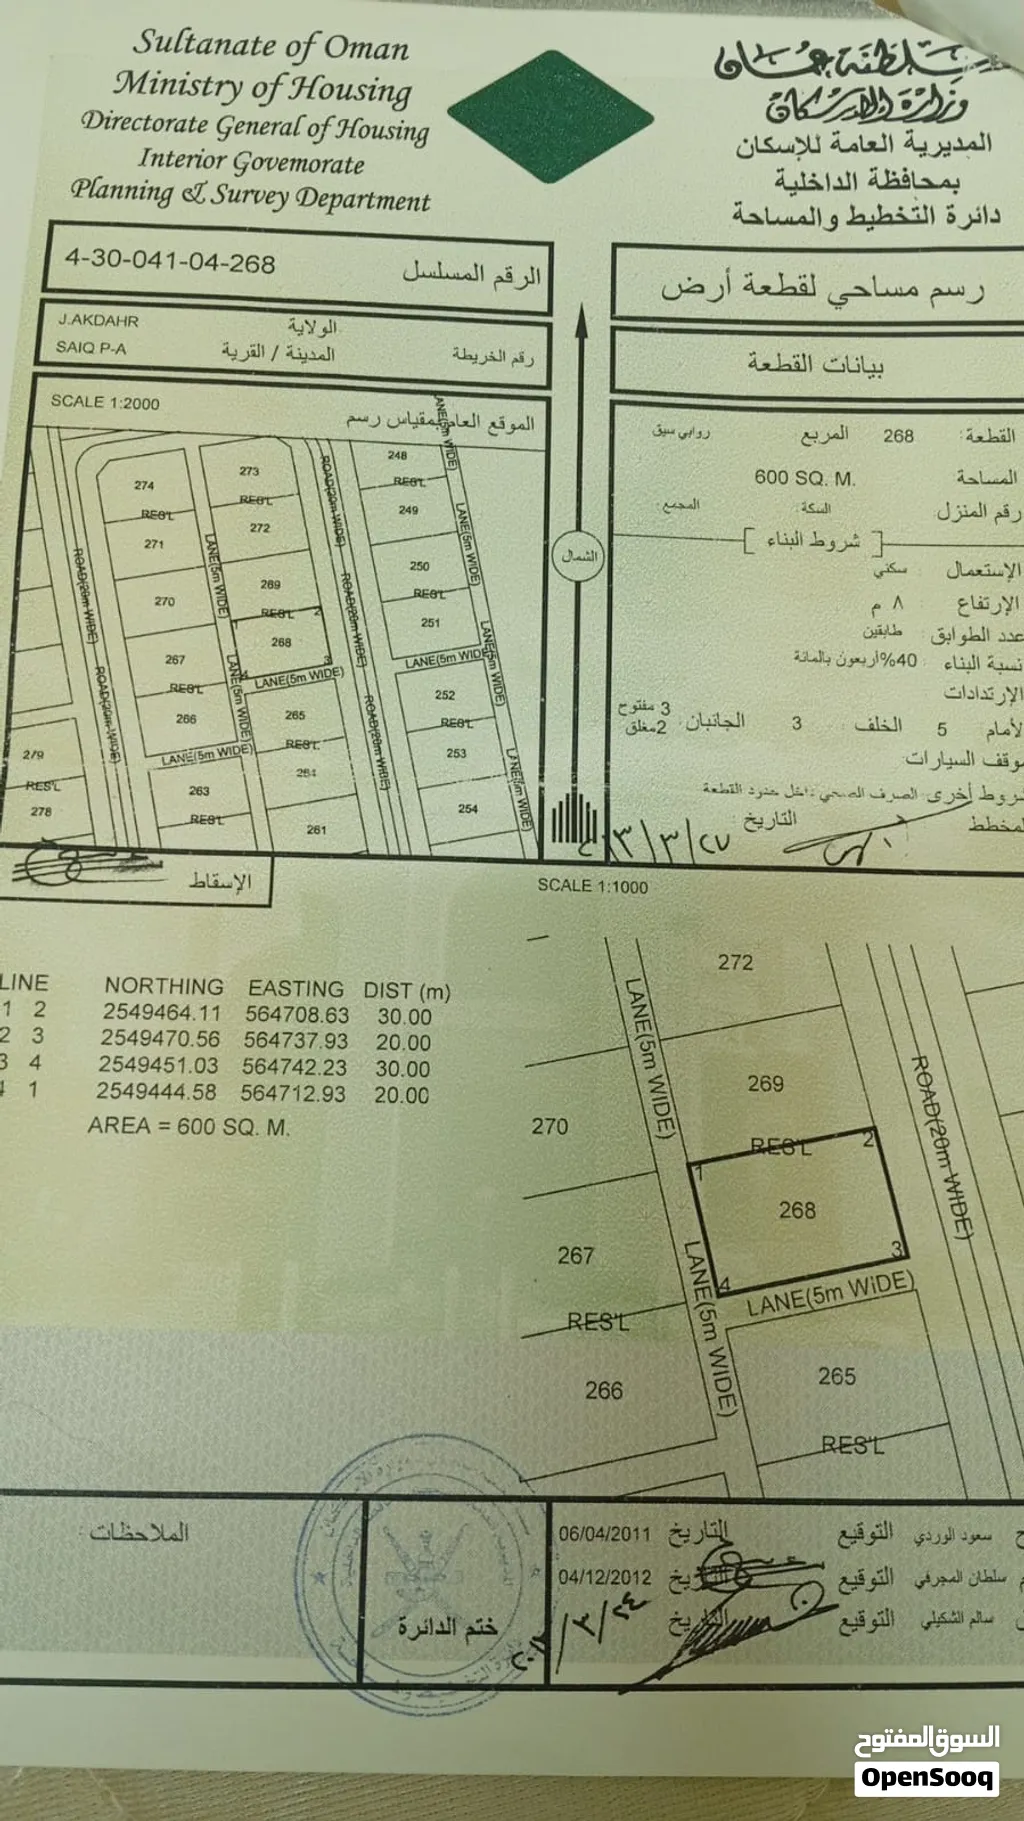 Sultanate of Oman
Ministry of Housing
Directorate General of Housing
Interior Govemorate
Planning & Survey Department
سلطنة عمان
وزارة الإسكان
المديرية العامة للإسكان
بمحافظة الداخلية
دائرة التخطيط والمساحة
4-30-041-04-268 الرقم المسلسل
J.AKDAHR الولاية
SAIQ P-A المدينة / القرية رقم الخريطة
SCALE 1:2000 الموقع العام بمقياس رسم
274
RES'L
271
270
267
RES'L
266
LANE(5m WIDE)
263
RES'L
279
RES'L
278
273
RES'L
272
269
RES'L
268
1
2
3
4
LANE(5m WIDE)
265
RES'L
264
261
248
RES'L
249
250
RES'L
251
LANE(5m WIDE)
252
RES'L
253
254
ROAD(20m WIDE)
ROAD(20m WIDE)
LANE(5m WIDE)
LANE(5m WIDE)
ROAD(20m WIDE)
ROAD(20m WIDE)
ROAD(20m WIDE)
LANE(5m WIDE)
LANE(5m WIDE)
LANE(5m WIDE)
LANE(5m WIDE)
الشمال
رسم مساحي لقطعة أرض
بيانات القطعة
القطعة: 268 المربع روابي سيق
المساحة 600 SQ. M.
رقم المنزل السكة: المجمع:
شروط البناء
الإستعمال سكني
الإرتفاع ٨ م
عدد الطوابق طابقين
نسبة البناء 40%أربعون بالمائة
الإرتدادات
الأمام 5 الخلف 3 الجانبان 3 مفتوح
2مغلق
موقف السيارات:
شروط أخرى الصرف الصحي داخل حدود القطعة
المخطط التاريخ ٢٠١٣/٣/٢٧
الإسقاط
SCALE 1:1000
LINE NORTHING EASTING DIST (m)
1 2 2549464.11 564708.63 30.00
2 3 2549470.56 564737.93 20.00
3 4 2549451.03 564742.23 30.00
4 1 2549444.58 564712.93 20.00
AREA = 600 SQ. M.
272
269
RES'L
270
268
1
2
3
4
267
RES'L
266
265
RES'L
LANE(5m WIDE)
LANE(5m WIDE)
LANE(5m WIDE)
ROAD(20m WIDE)
الملاحظات
ختم الدائرة
سعود الوردي التوقيع التاريخ 06/04/2011
سلطان المجرفي التوقيع التاريخ 04/12/2012
سالم الشكيلي التوقيع التاريخ
السوق المفتوح
OpenSooq